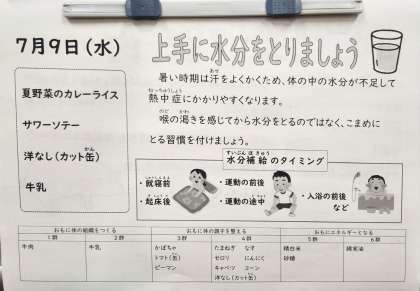 7月9日（水）
上手に水分をとりましょう
夏野菜のカレーライス
サワーソテー
洋なし（カット缶）
牛乳
暑い時期は汗をよくかくため、体の中の水分が不足して
熱中症にかかりやすくなります。
喉の渇きを感じてから水分をとるのではなく、こまめに
とる習慣を付けましょう。
水分補給のタイミング
・就寝前
・起床後
・運動の前後
・運動の途中
・入浴の前後
など
おもに体の組織をつくる おもに体の調子を整える おもにエネルギーとなる
1群 2群 3群 4群 5群 6群
牛肉 牛乳 かぼちゃ たまねぎ なす 精白米
トマト（缶） セロリ にんにく 砂糖
ピーマン キャベツ コーン
洋なし（缶）